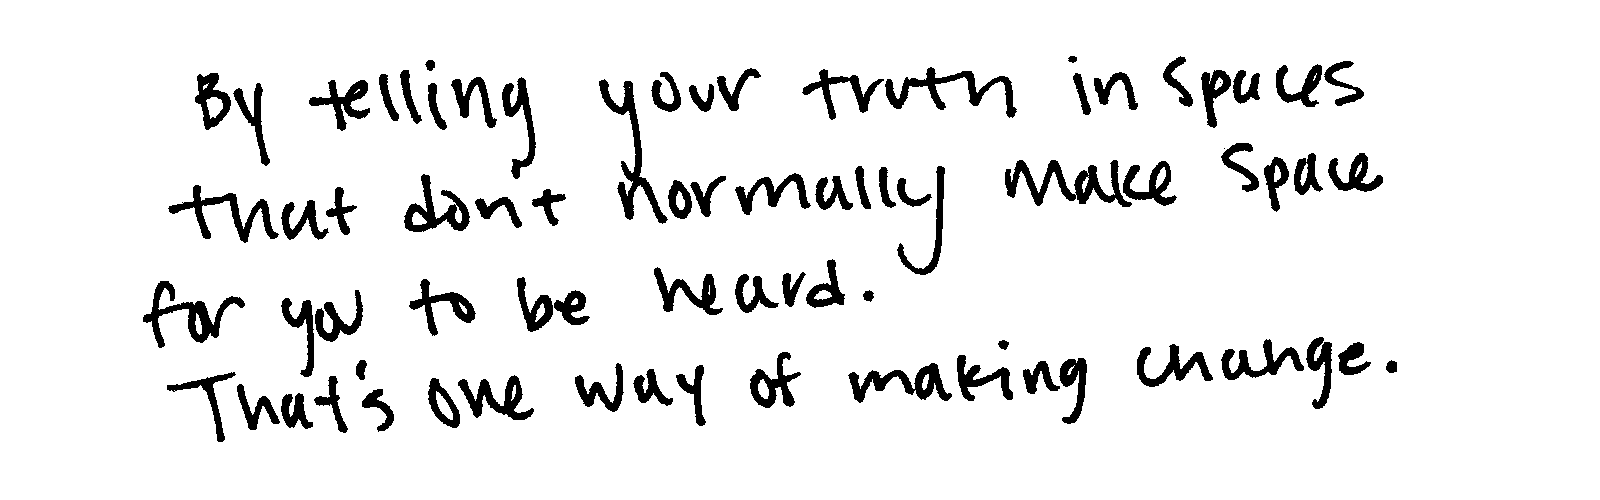 By telling your truth in spaces
that don't normally make space
for you to be heard.
That's one way of making change.